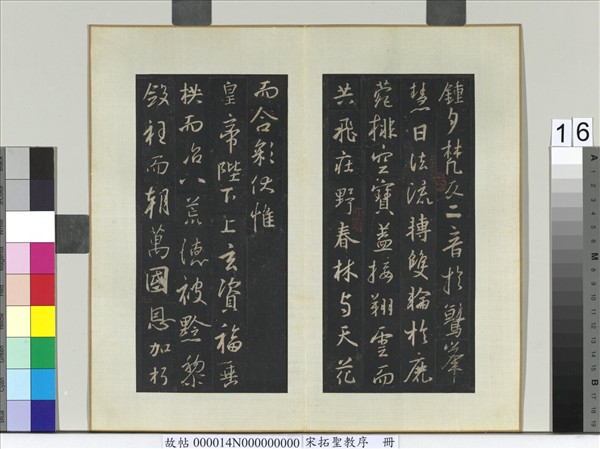 鍾夕梵交二音於鷲峯
慧日法流轉雙輪於鹿
菀排空寶蓋接翔雲而
共飛莊野春林與天花
而合彩伏惟
皇帝陛下上玄資福垂
拱而治八荒德被黔黎
斂衽而朝萬國恩加朽
故帖 000014N000000000 宋拓聖教序 冊
16
A 1 2 3 4 5 6 M 8 9 10 11 12 13 14 15 B 17 18 19